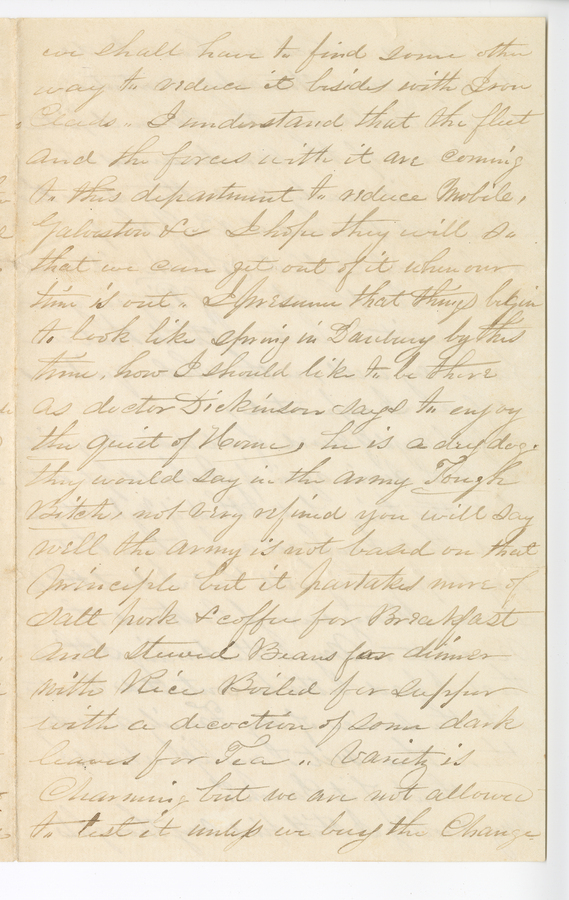 we shall have to find some other
way to reduce it besides with Iron
Clads.. I understand that the fleet
and the forces with it are coming
to this department to reduce Mobile,
Galveston &c I hope they will so
that we can get out of it when our
time is out.. I presume that things begin
to look like spring in Danbury by this
time, how I should like to be there
as doctor Dickinson says to enjoy
the quiet of Home, he is a dry dog.
they would say in the army Tough
Bitch, not very refined you will say
well the army is not based on that
principle but it partakes more of
salt pork & coffee for Breakfast
and stewed Beans for dinner
with Rice Boiled for supper
with a decoction of some dark
leaves for Tea .. Variety is
Charming but we are not allowed
to test it unless we buy the Change